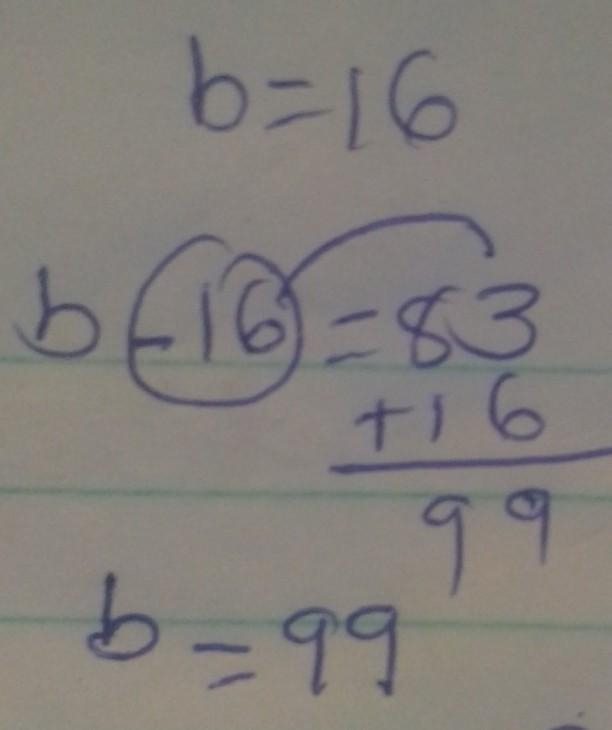 b=16
b-16=83
+16
99
b=99